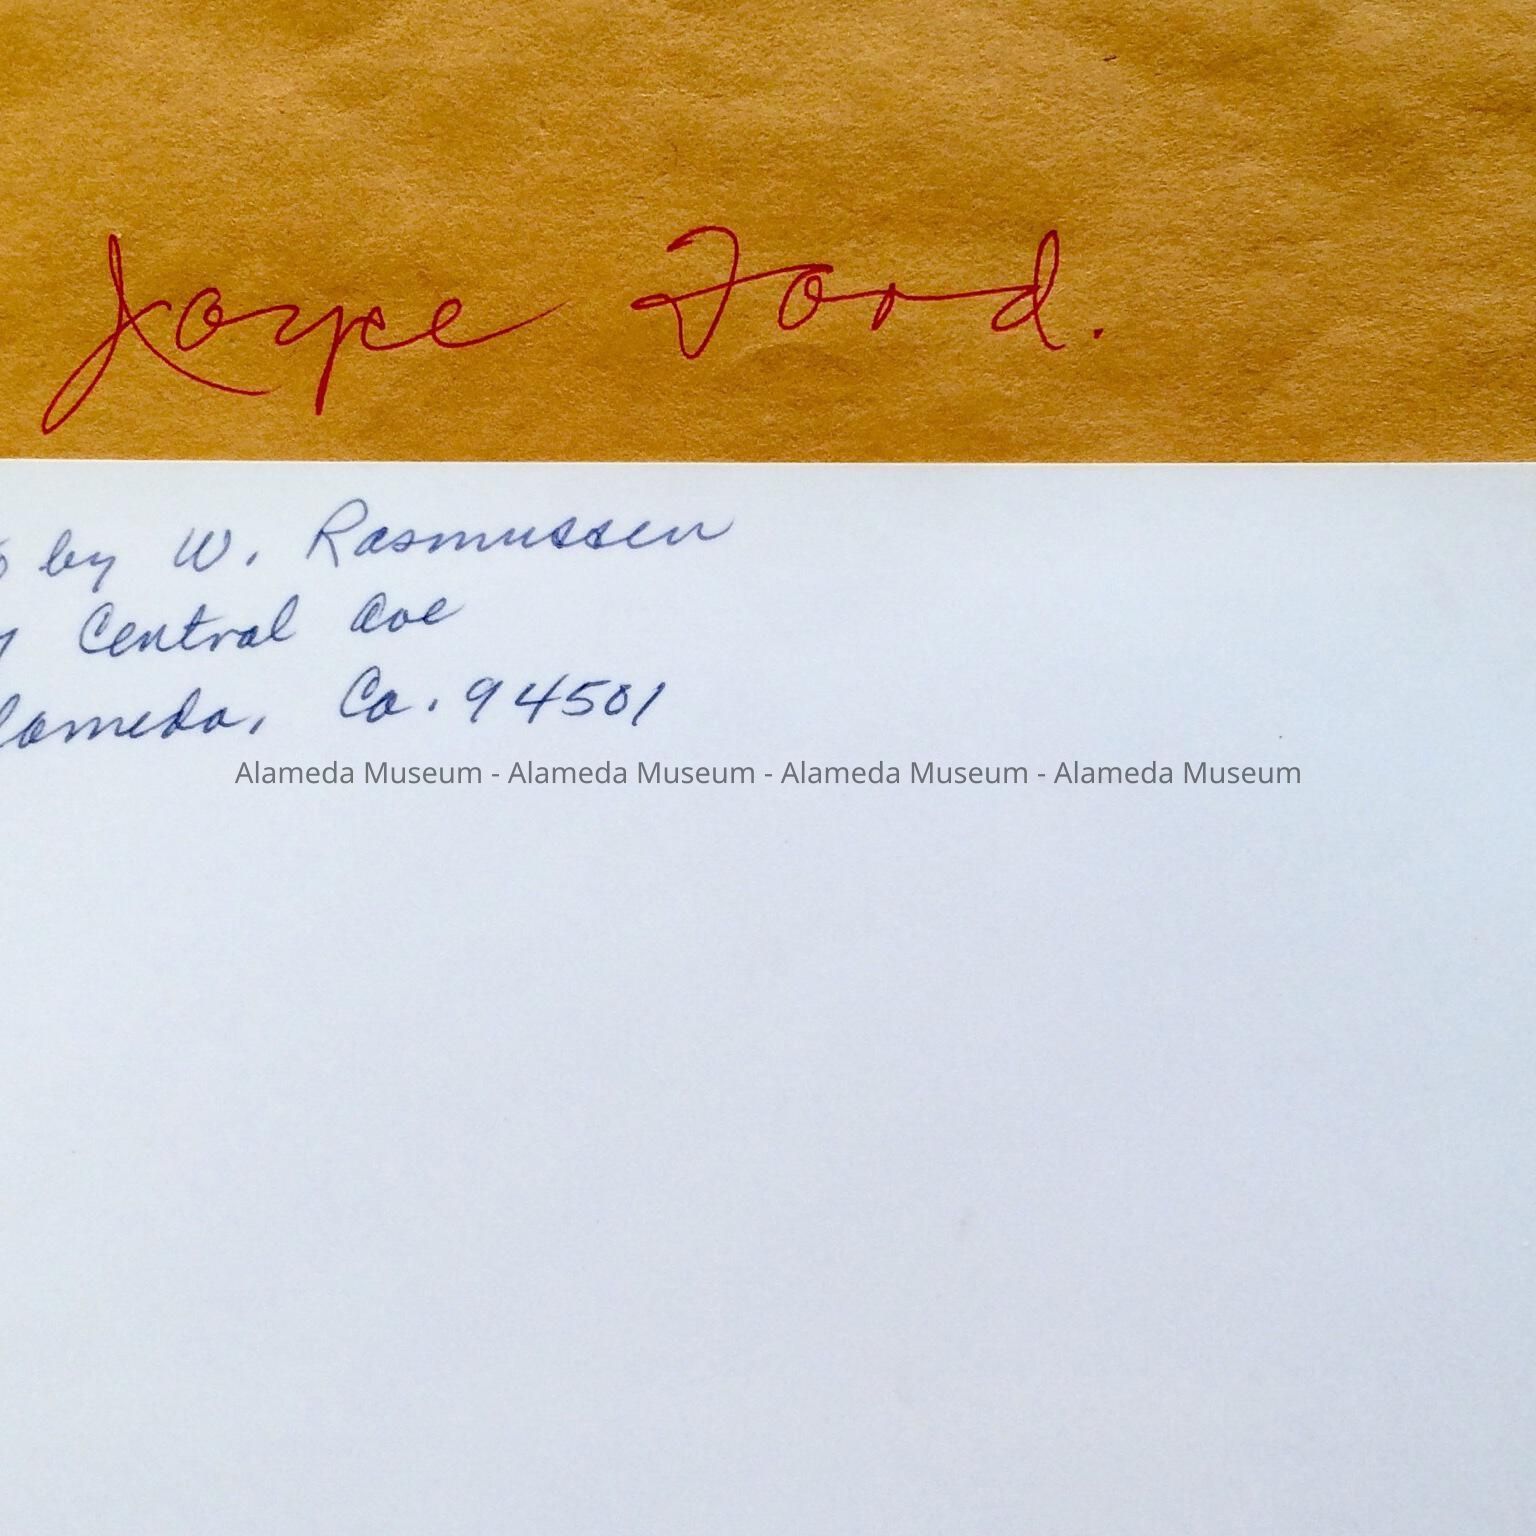 Joyce Ford.
by W. Rasmussen
Central Ave
lameda, Ca. 94501
Alameda Museum - Alameda Museum - Alameda Museum - Alameda Museum